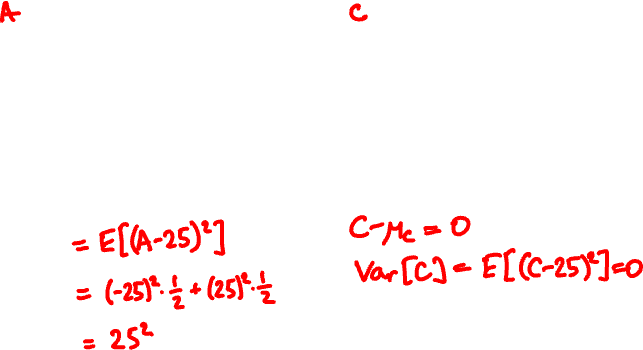 A
C
= E[(A-25)²]
= (-25)²·1/2 + (25)²·1/2
= 25²
C-μ_C = 0
Var[C] = E[(C-25)²]=0